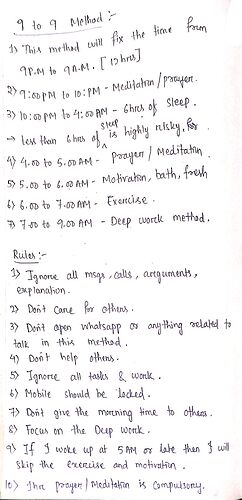 9 to 9 Method :-
1) This method will fix the time from
9P.M to 9A.M. [12hrs]
2) 9:00PM to 10:PM - Meditation/prayer.
3) 10:00 PM to 4:00 AM - 6hrs of sleep.
→ less than 6hrs of sleep is highly risky, for
4) 4.00 to 5.00AM - Prayer/Meditation
5) 5.00 to 6.00 AM - Motivation, bath, fresh
6) 6.00 to 7.00 AM - Exercise.
7) 7.00 to 9.00 AM - Deep work method.
Rules :-
1) Ignore all msgs, calls, arguments,
explanation.
2) Don't care for others.
3) Don't open whatsapp or anything related to
talk in this method.
4) Don't help others.
5) Ignore all tasks & work.
6) Mobile should be locked.
7) Don't give the morning time to others.
8) Focus on the Deep work.
9) If I woke up at 5AM or late then I will
skip the exercise and motivation.
10) The prayer/Meditation is compulsory.